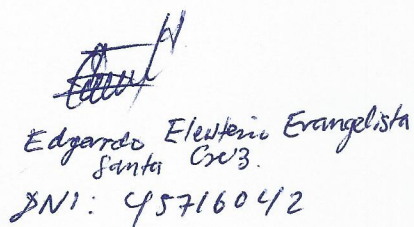 Edgardo Eleuterio Evangelista
Santa Cruz.
DNI: 45716042